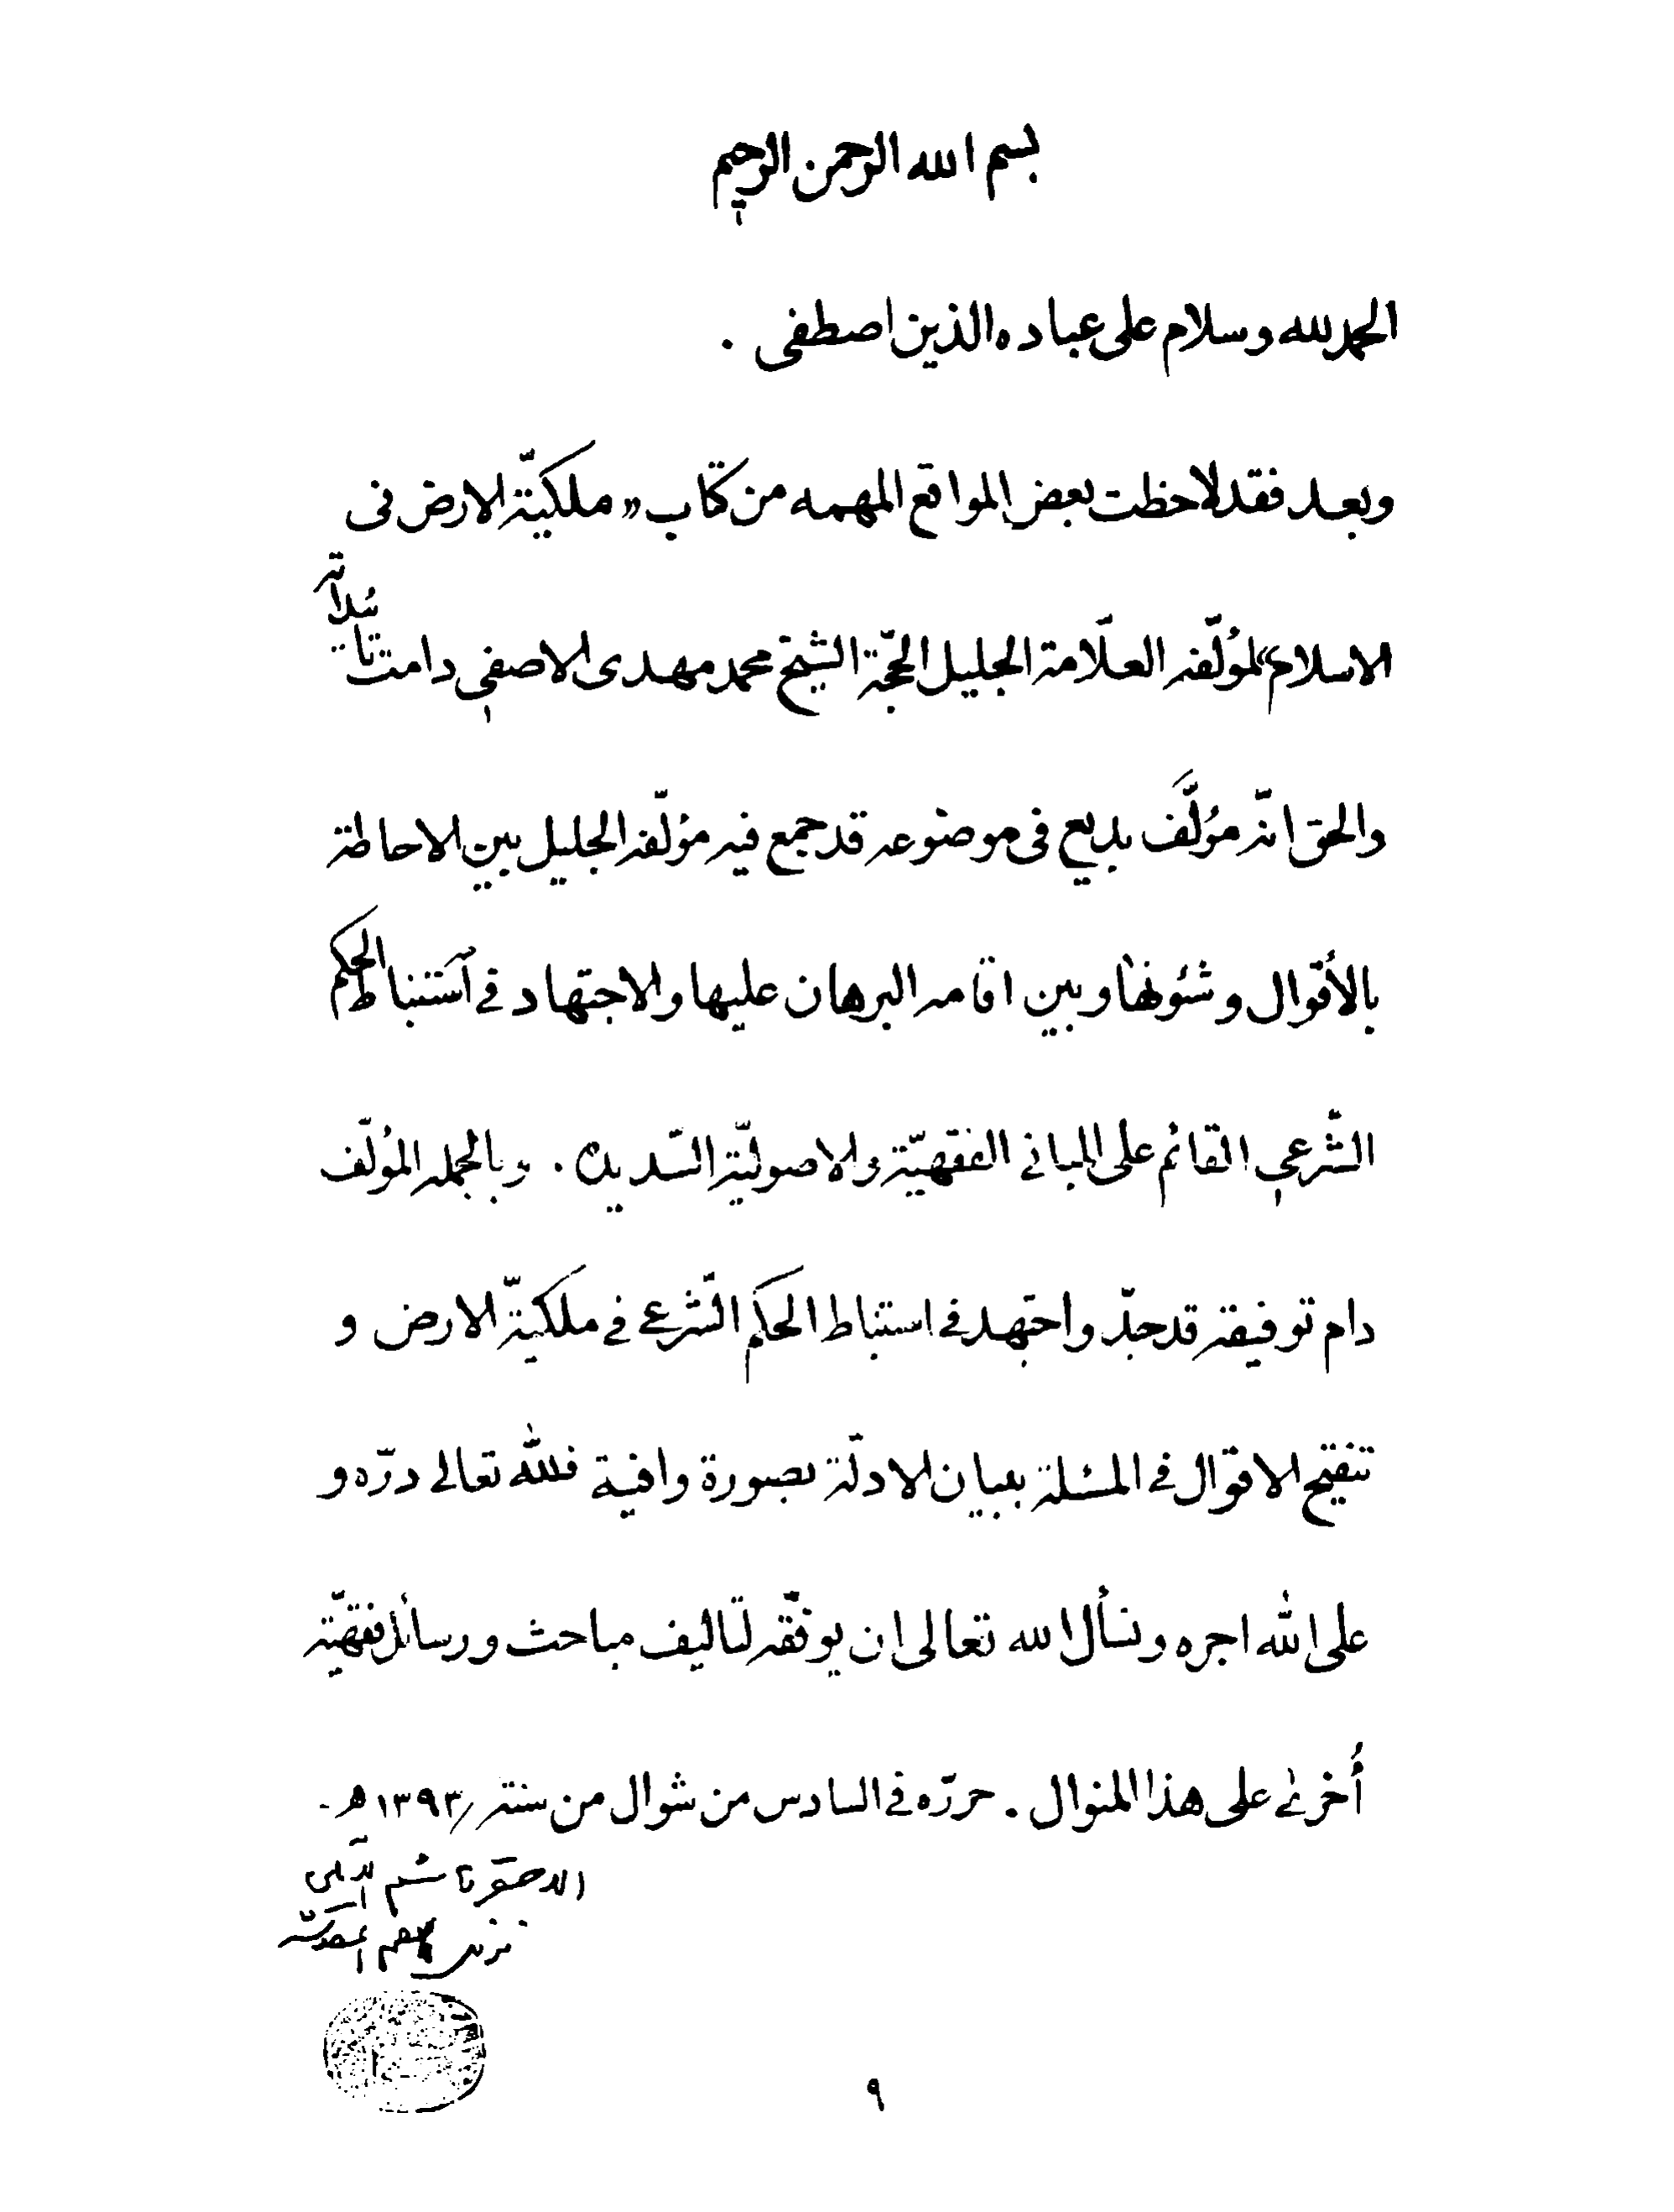 بسم الله الرحمن الرحيم
الحمد لله وسلام على عباده الذين اصطفى .
وبعد فقد لاحظت بعض المواقع المهمه من كتاب «ملكيّة الارض فى
الاسلام» لمؤلّفه العلّامة الجليل الحجّة الشيخ محمد مهدى الاصفي دامت تائيداته
والحق انّه مؤلَّف بديع فى موضوعه قد جمع فيه مؤلّفه الجليل بين الاحاطة
بالأقوال وشئونها وبين اقامه البرهان عليها والاجتهاد في استنباط الحكم
الشّرعي القائم على المباني الفقهيّة والاصوليّة السّديده . وبالجمله المؤلّف
دام توفيقه قد جدّ واجتهد في استنباط الحكم الشّرعي في ملكيّة الارض و
تنقيح الاقوال في المسئلة ببيان الادلّة بصورة وافية فلله تعالى درّه و
على الله اجره ونسأل الله تعالى ان يوفّقه لتاليف مباحث ورسائل فقهيّة
أخرى على هذا المنوال . حرّره في السادس من شوال من سنة ١٣٩٣ هـ -
الاحقر هاشم الآملى
٩